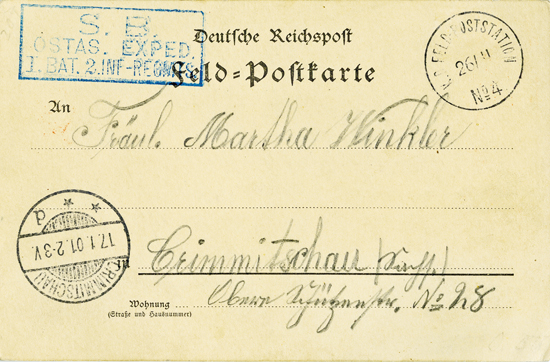 S. B.
OSTAS. EXPED.
I. BAT. 2. INF-REGMTS.
Deutsche Reichspost
Feld-Postkarte
K.D. FELD-POSTSTATION
26/11
No 4
An
Fräul. Martha Winkler
CRIMMITSCHAU
17.1.01.2-3V.
* * d
in Crimmitschau (Sachs.)
Wohnung
(Straße und Hausnummer)
Obere Schützenstr. No 28